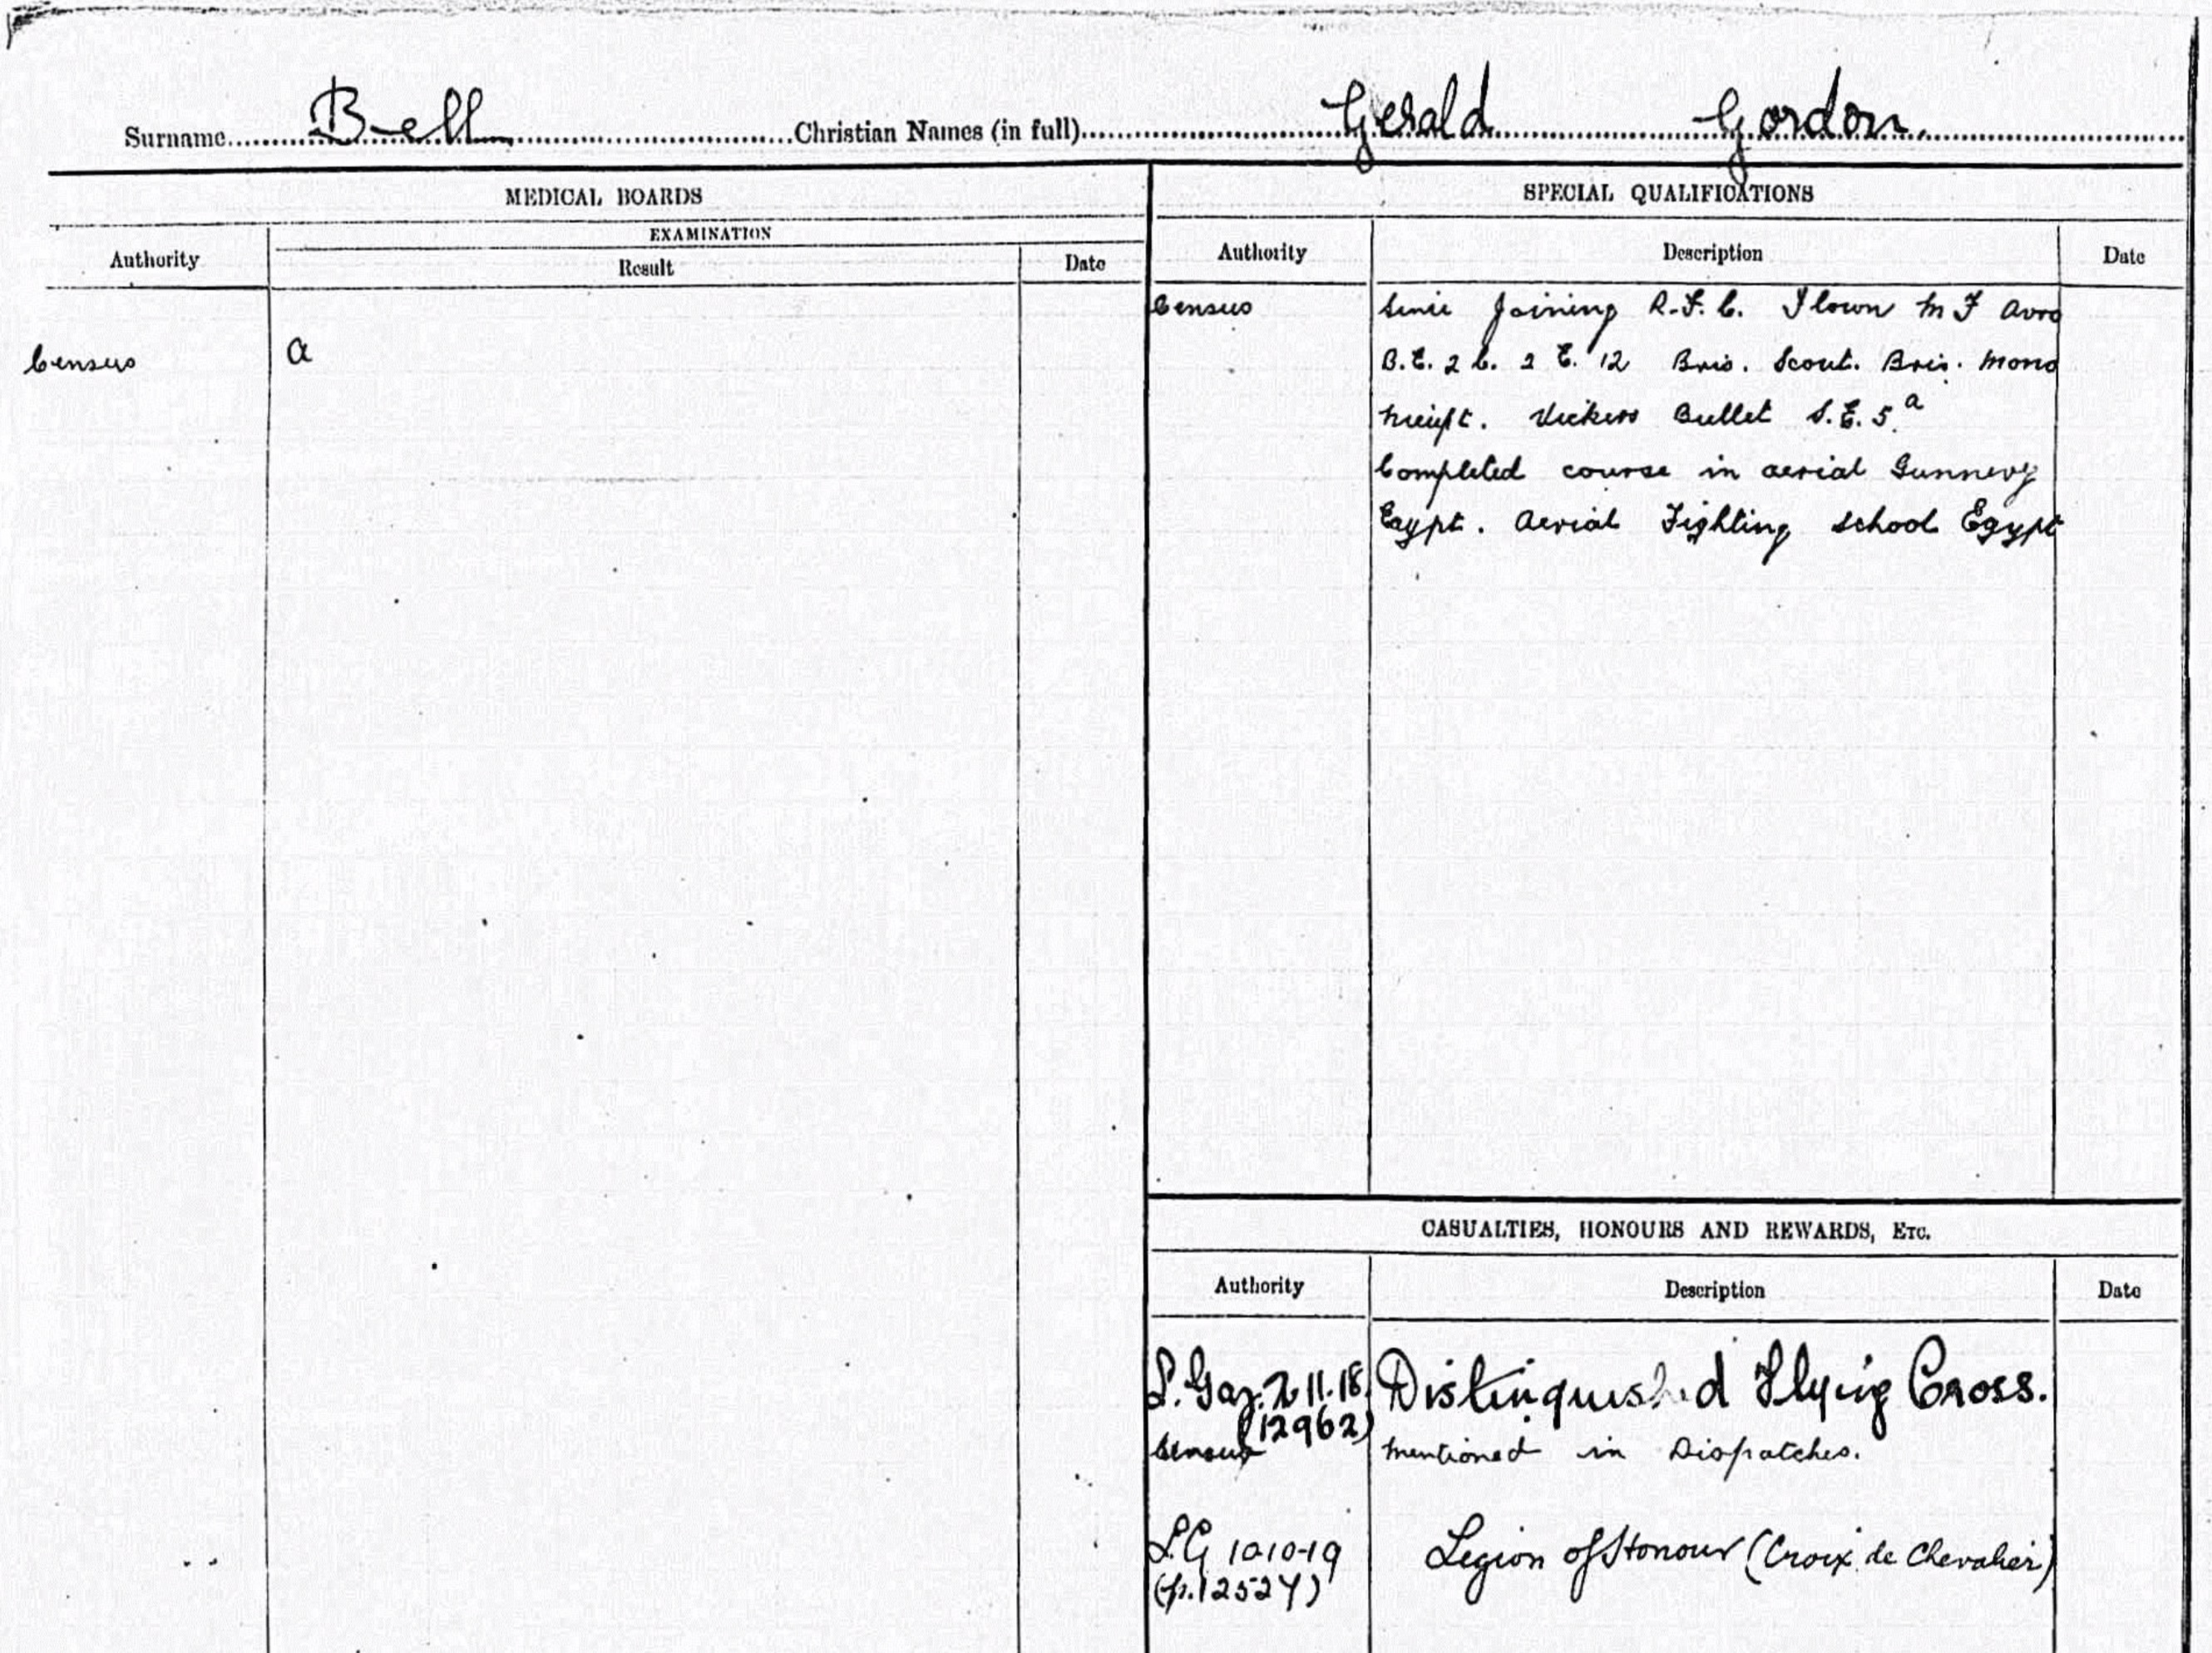 Surname Bell Christian Names (in full) Gerald Gordon.
MEDICAL BOARDS
Authority
EXAMINATION
Result
Date
Census
a
SPECIAL QUALIFICATIONS
Authority
Description
Date
Census
Since Joining R.F.C. Flown M F Avro
B.E. 2 C. 2 E. 12 Bris. Scout. Bris. Mono
Nieupt. Vickers Bullet S.E. 5 a
Completed course in aerial Gunnery
Egypt. Aerial Fighting school Egypt
CASUALTIES, HONOURS AND REWARDS, ETC.
Authority
Description
Date
L. Gaz. 2.11.18. Distinguished Flying Cross.
(12962)
Census Mentioned in Dispatches.
L.G 10-10-19 Legion of Honour (Croix de Chevalier)
(p. 12527)